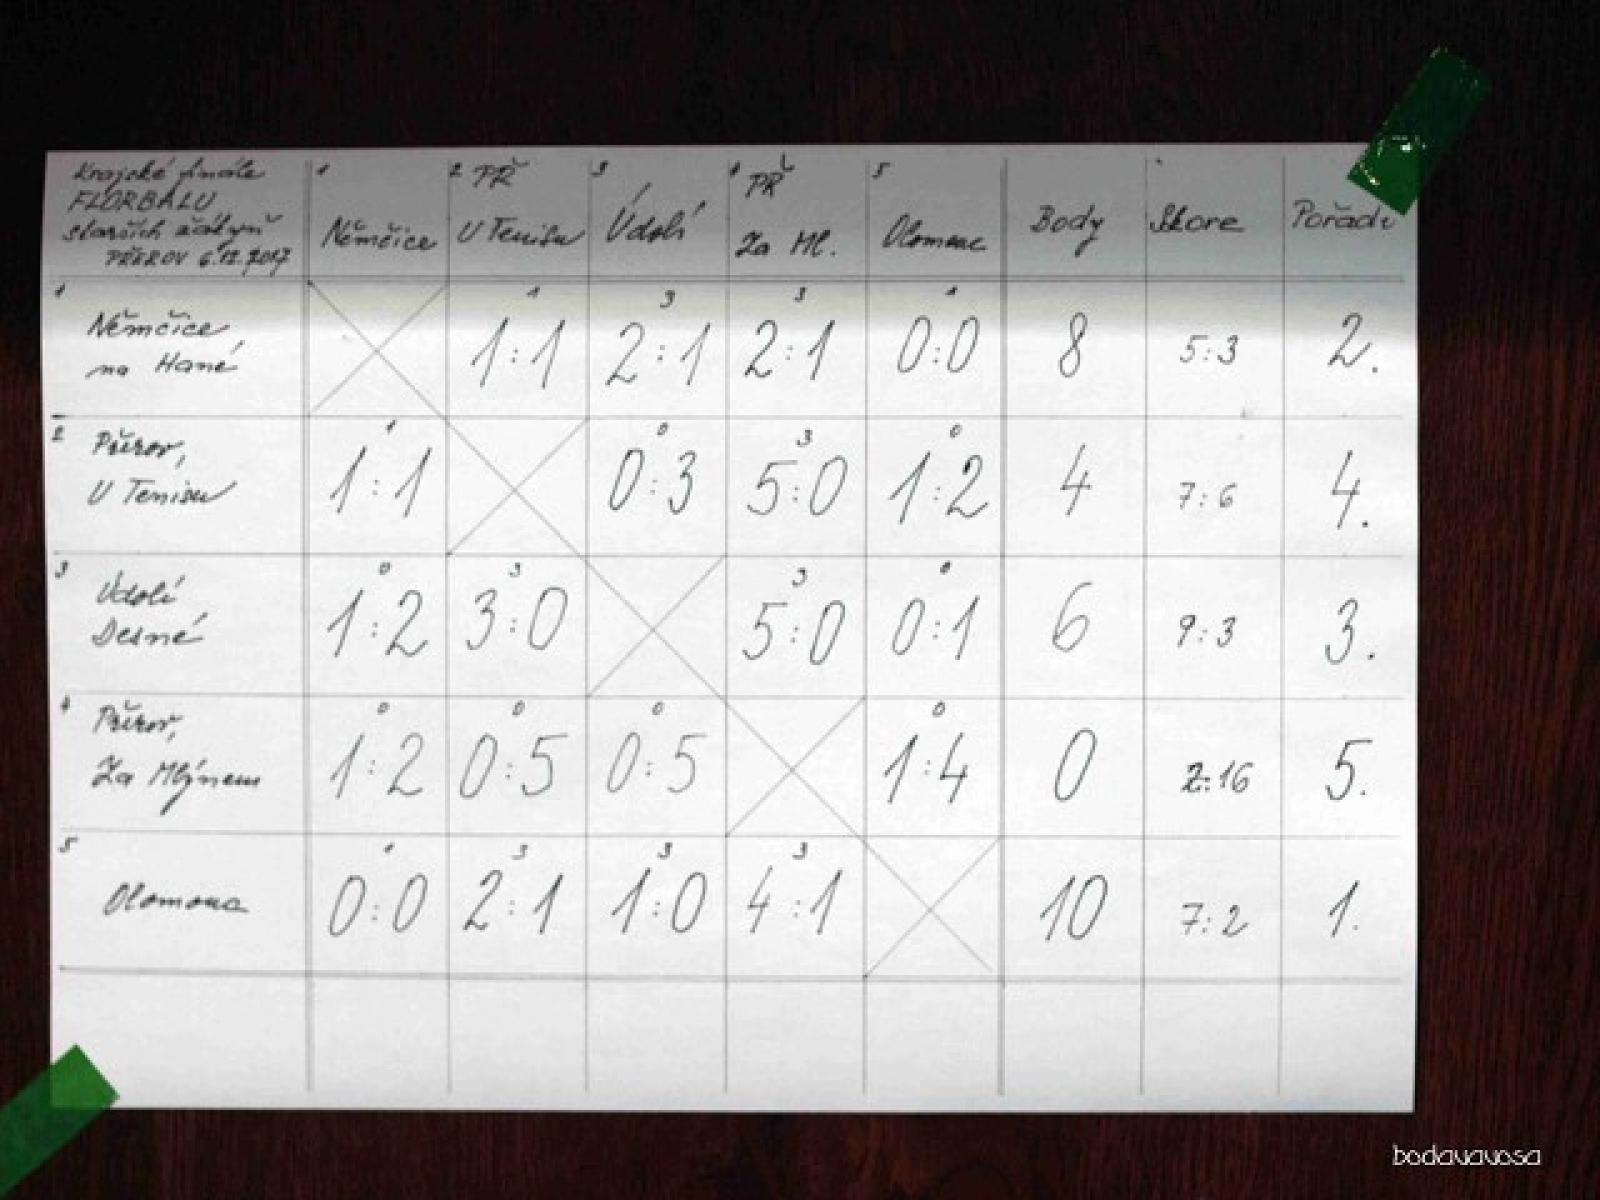 Krajské finále
FLORBALU
starších žákyň
PŘEROV 6.12.2017
1 Němčice
2 PŘ U Tenisu
3 Údolí
4 PŘ Za Ml.
5 Olomouc
Body
Skore
Pořadí
1 Němčice na Hané
1 1:1
3 2:1
3 2:1
1 0:0
8
5:3
2.
2 Přerov, U Tenisu
1 1:1
0 0:3
3 5:0
0 1:2
4
7:6
4.
3 Údolí Desné
0 1:2
3 3:0
3 5:0
0 0:1
6
9:3
3.
4 Přerov, Za Mlýnem
0 1:2
0 0:5
0 0:5
0 1:4
0
2:16
5.
5 Olomouc
1 0:0
3 2:1
3 1:0
3 4:1
10
7:2
1.
bodavavosa